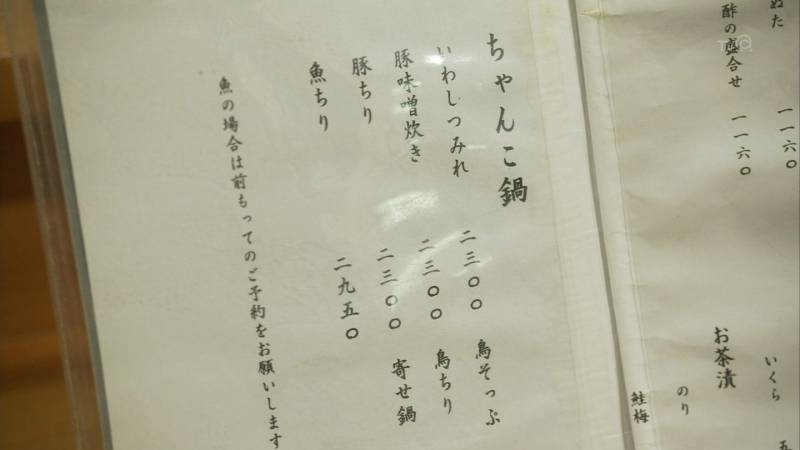 ぬた 一一六〇
酢の盛合せ 一一六〇
お茶漬
いくら 五
のり
鮭梅
ちゃんこ鍋
いわしつみれ 二三〇〇 鳥そっぷ
豚味噌炊き 二三〇〇 鳥ちり
豚ちり 二三〇〇 寄せ鍋
魚ちり 二九五〇
魚の場合は前もってのご予約をお願いします